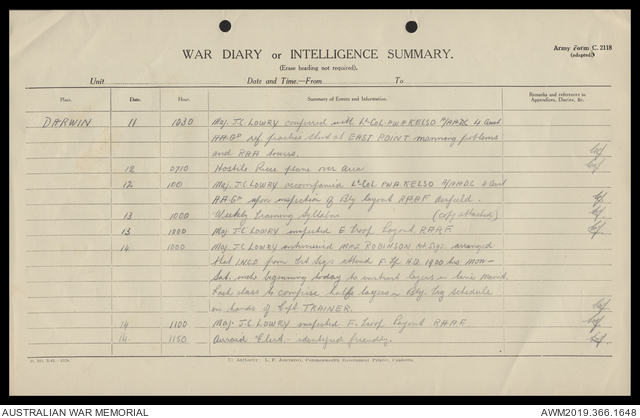 Army Form C. 2118
(adapted)
WAR DIARY or INTELLIGENCE SUMMARY.
(Erase heading not required).
Unit Date and Time.—From To
Place. Date. Hour. Summary of Events and Information. Remarks and references to Appendices, Diaries, &c.
DARWIN 11 1030 Maj. J.C LOWRY conferred with Lt Col. P.W.A KELSO
ref. practice shoot at EAST POINT manning problems
and RAA
12 0710 Hostile Recce plane over area
12 100 Maj. J.C LOWRY accompanied Lt Col P.W.A. KELSO
upon inspection of Bty layout RAAF airfield.
13 1000 Weekly Training Syllabus (copy attached)
13 1000 Maj. J.C LOWRY inspected E troop layout RAAF
14 1000 Maj. J.C LOWRY interviewed ROBINSON Sigs. arranged
that 1 NCO from Sigs attend H.Q. 1900 hrs Mon-
Sat. beginning today to instruct layers in
class to comprise layers Bty. Trg schedule
in hands of Capt TRAINER.
14 1100 Maj. J.C LOWRY inspected F. troop layout RAAF
14 1150 Aircraft Alert - identified friendly.
By Authority: L. F. Johnston, Commonwealth Government Printer, Canberra.
AUSTRALIAN WAR MEMORIAL AWM2019.366.1648